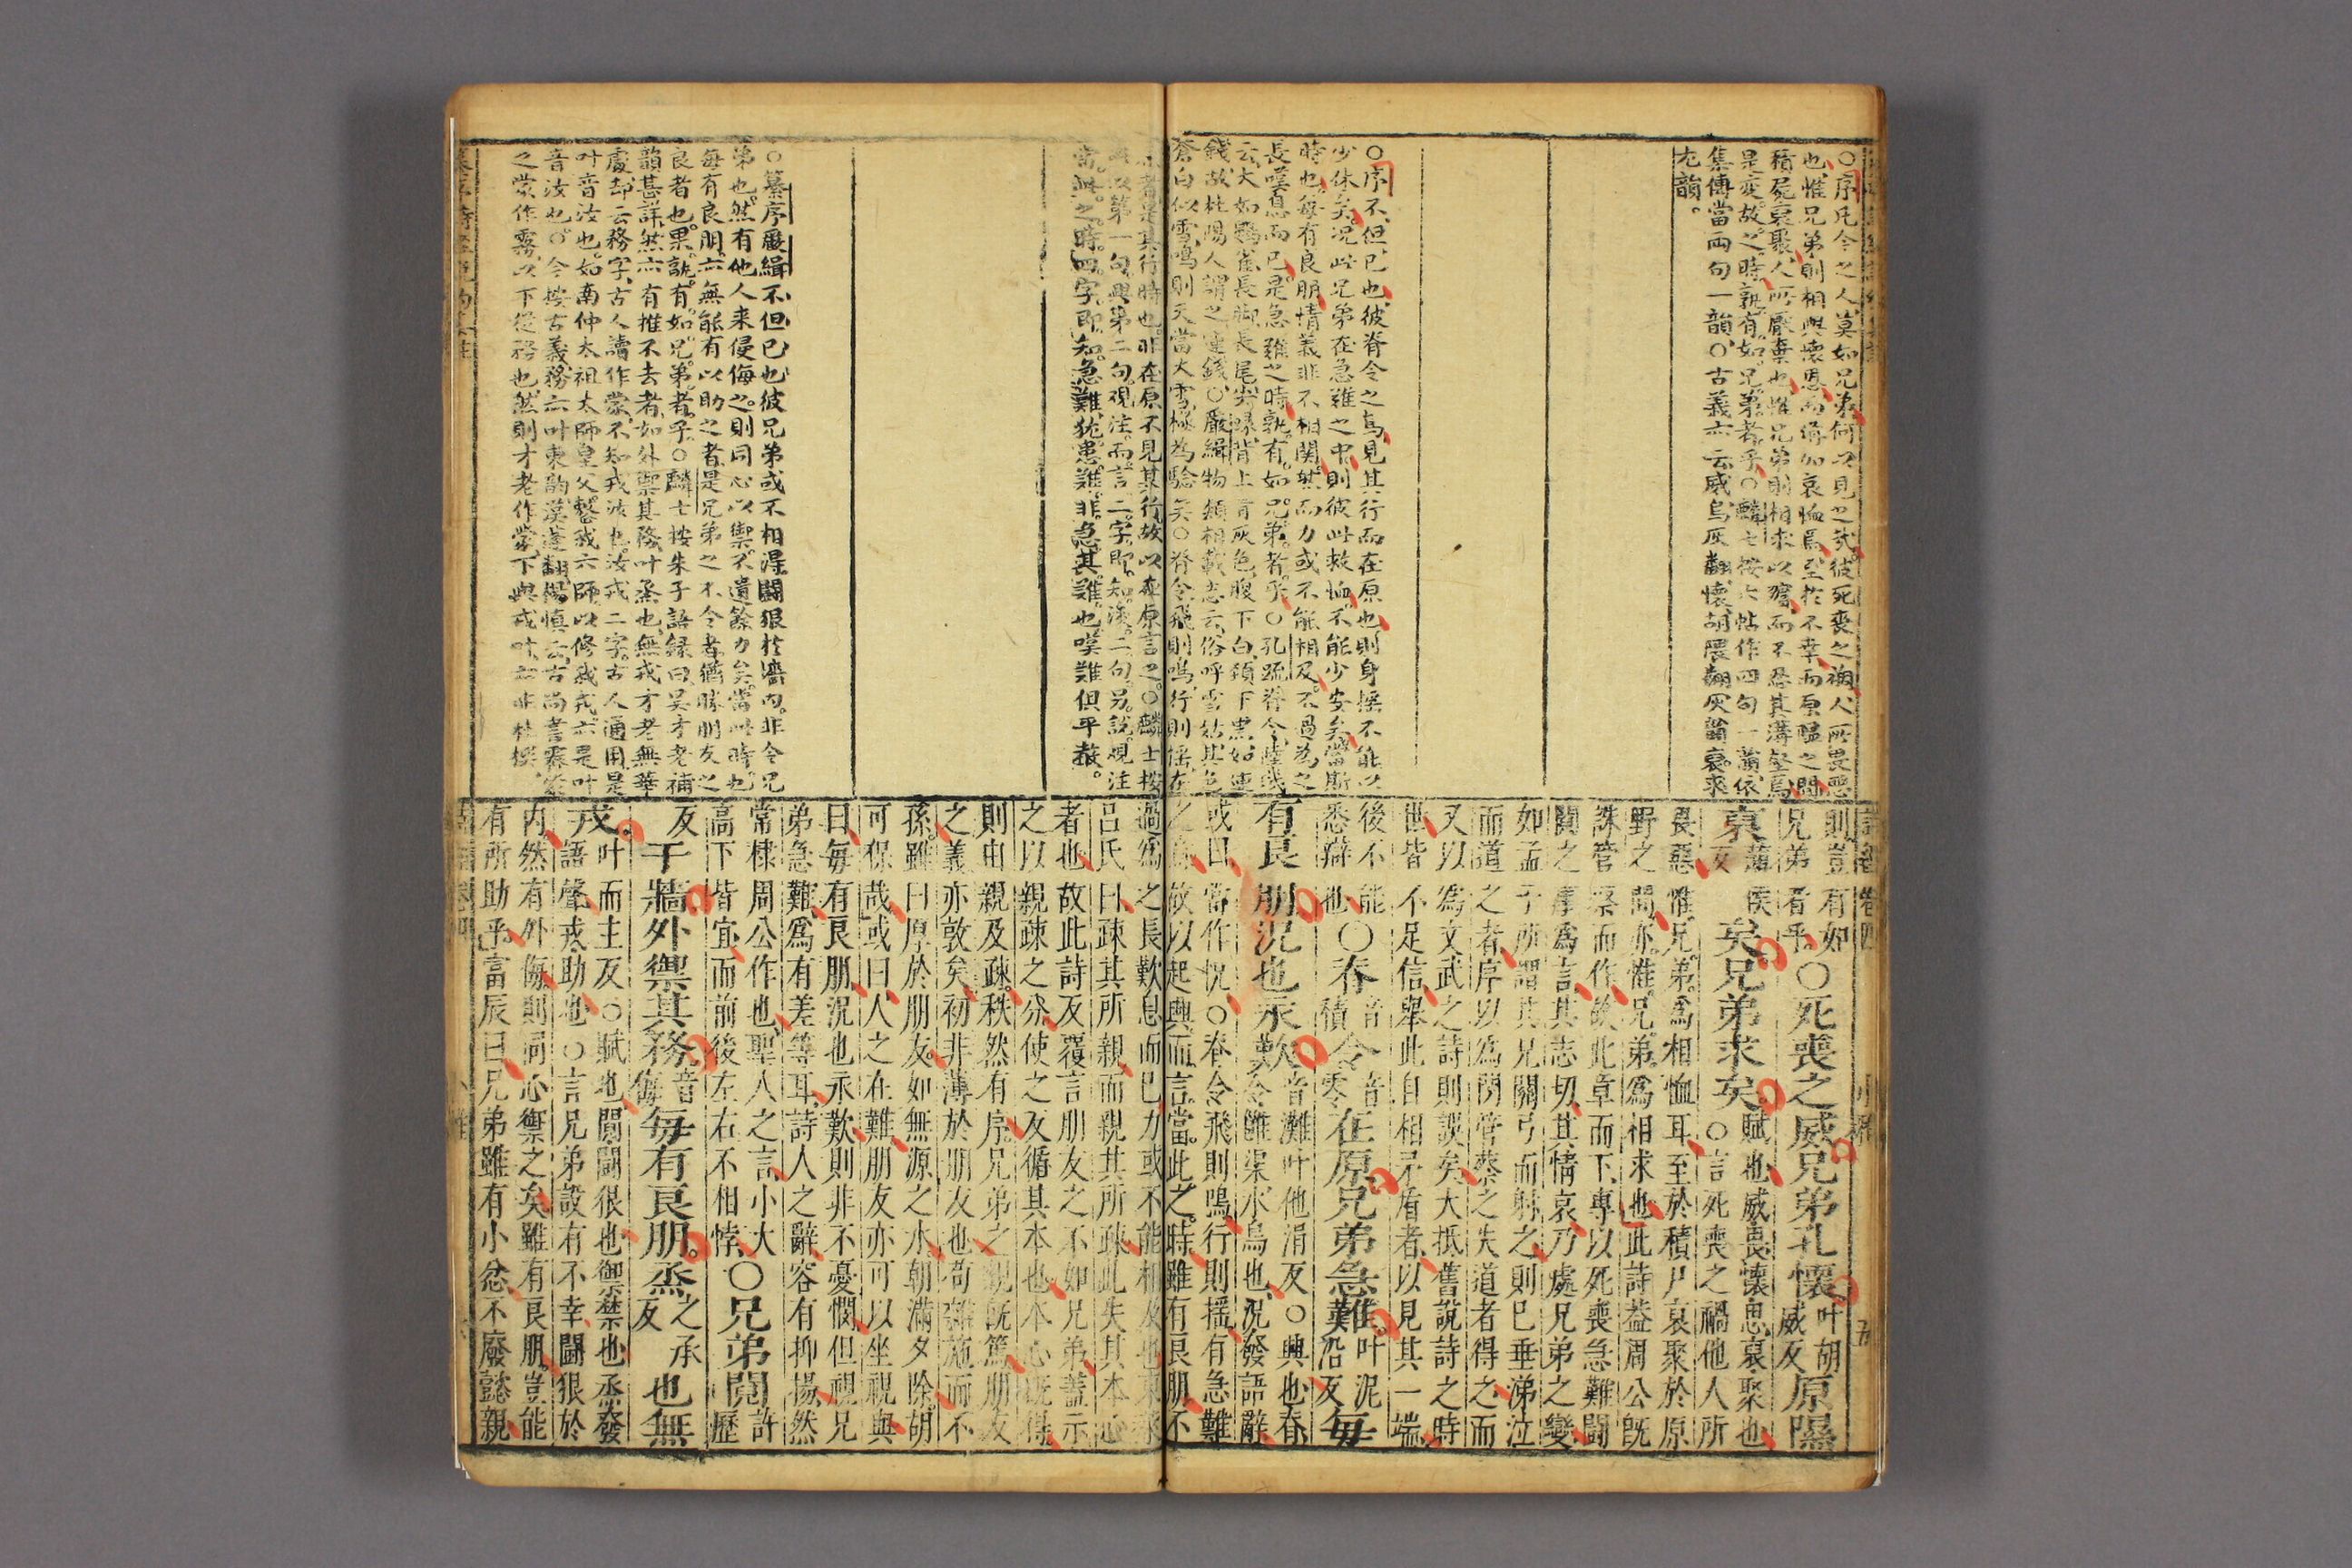 ○序凡今之人莫如兄弟何以見之哉彼死喪之禍人所畏惡
也惟兄弟則相與懷恩而省加哀恤焉至於不幸而原隰之間
積屍裒聚人所厭棄也惟兄弟則相求以
是変故之時孰有如兄弟者乎○麟士按六帖作四句一韻依
集傳當兩句一韻○古義亦云威烏灰翻懷胡隈翻灰韻裒求
尤韻
○序不但已也彼脊令之鳥見其行而在原也則身揺不能以
少休矣况此兄弟在急難之中則彼此救恤不能少安矣當斯
時也每有良朋情義非不相関然而力或不能相及不過為之
長嘆息而已是急難之時孰有如兄弟者乎○孔疏脊令
云大如鷃雀長脚長尾尖喙背上青灰色腹下白頸下黒如連
錢故杜陽人謂之連錢○嚴緝物類相載志云俗呼雪姑其色
蒼白似雪鳴則天當大雪極為騐矣○脊令飛則鳴行則揺在
則豈有如
兄弟者乎
○死喪之威兄弟孔懷
叶胡
威反
原隰
裒
蒲
侯
反
矣兄弟求矣
賦也威畏懷思裒聚也
○言死喪之禍他人所
畏惡惟兄弟為相恤耳至於積尸裒聚於原
野之間亦惟兄弟為相求也此詩蓋周公既
誅管蔡而作故此章而下專以死喪急難鬪
鬩之事為言其志切其情哀乃處兄弟之變
如孟子所謂其兄關弓而射之則已垂涕泣
而道之者序以為閔管蔡之失道者得之而
又以為文武之詩則誤矣大抵舊說詩之時
世皆不足信舉此自相矛盾者以見其一端
後不能
悉辯也
○脊
音
積
令
音
零
在原兄弟急難
叶泥
沿反
每
有良朋況也永歎
音灘叶他涓反○興也脊
令雝渠水鳥也況發語辭
或曰當作怳○脊令飛則鳴行則揺有急難
之意故以起興而言當此之時雖有良朋不
者是其行時也非在原不見其行故以在原言之○麟士按
以第一句興第二句覌注而言二字即知後二句另説覌注
當此之時四字即知急難犹患難非急其難也嘆難但平聲
○纂序嚴緝不但已也彼兄弟或不相得鬪狠扵墻内非令兄
弟也然有他人来侵侮之則同心以禦不遺餘力矣當此時也
每有良朋亦無能有以助之者是兄弟之不令者猶勝朋友之
良者也果孰有如兄弟者乎○麟士按朱子語録曰吴才老補
韻甚詳然亦有推不去者如外禦其務叶烝也無戎才老無㝷
處却云務字古人讀作蒙不知戎汝也汝戎二字古人通用是
叶音汝也如南仲太祖太師皇父整我六師以修我戎亦是叶
音汝也○今按古義務亦叶東韻漢蓬翻楊慎云古尚書雺
之蒙作霧以下從務也然則才老作蒙下與戎叶亦非杜撰
過為之長歎息而已力或不能相及也東萊
呂氏曰疎其所親而親其所疎此失其本心
者也故此詩反覆言朋友之不如兄弟蓋示
之以親疎之分使之反循其本也本心既得
則由親及疎秩然有序兄弟之親既篤朋友
之義亦敦矣初非薄於朋友也苟雜施而不
孫雖曰厚於朋友如無源之水朝滿夕除胡
可保哉或曰人之在難朋友亦可以坐視與
曰每有良朋況也永歎則非不憂憫但視兄
弟急難為有差等耳詩人之辭容有抑揚然
常棣周公作也聖人之言小大
高下皆宜而前後左右不相悖
○兄弟鬩
許
歷
反
于牆外禦其務
音
侮
每有良朋烝
之承
反
也無
戎
叶而主反○賦也鬩鬪很也禦禁也烝發
語聲戎助也○言兄弟設有不幸鬪狠於
内然有外侮則同心禦之矣雖有良朋豈能
有所助乎富辰曰兄弟雖有小忿不廢懿親